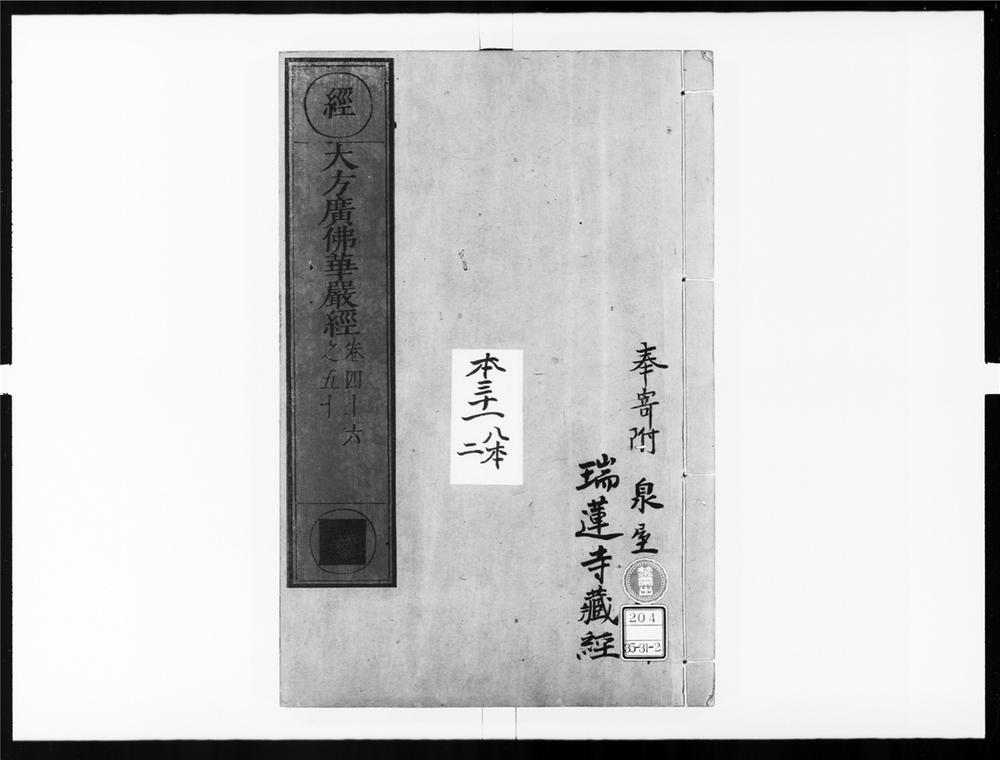 奉寄附 泉屋
瑞蓮寺藏經
禁帶出
204
35-31-2
本三十一 八本
二
經
大方廣佛華嚴經 卷四十六
之五十